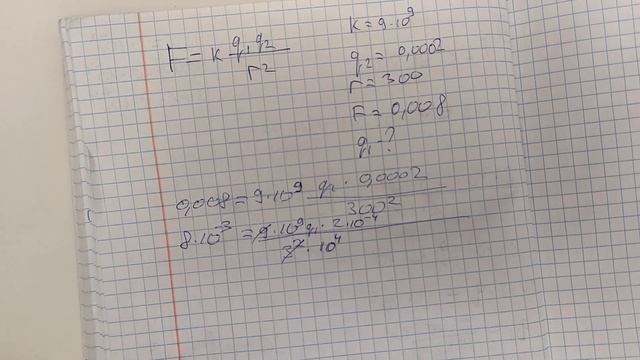 F = k q₁q₂ / r²
k = 9·10⁹
q₂ = 0,0002
r = 300
F = 0,008
q₁ - ?
0,008 = 9·10⁹ q₁ · 0,0002 / 300²
8·10⁻³ = 9·10⁹ q₁ · 2·10⁻⁴ / 3² · 10⁴